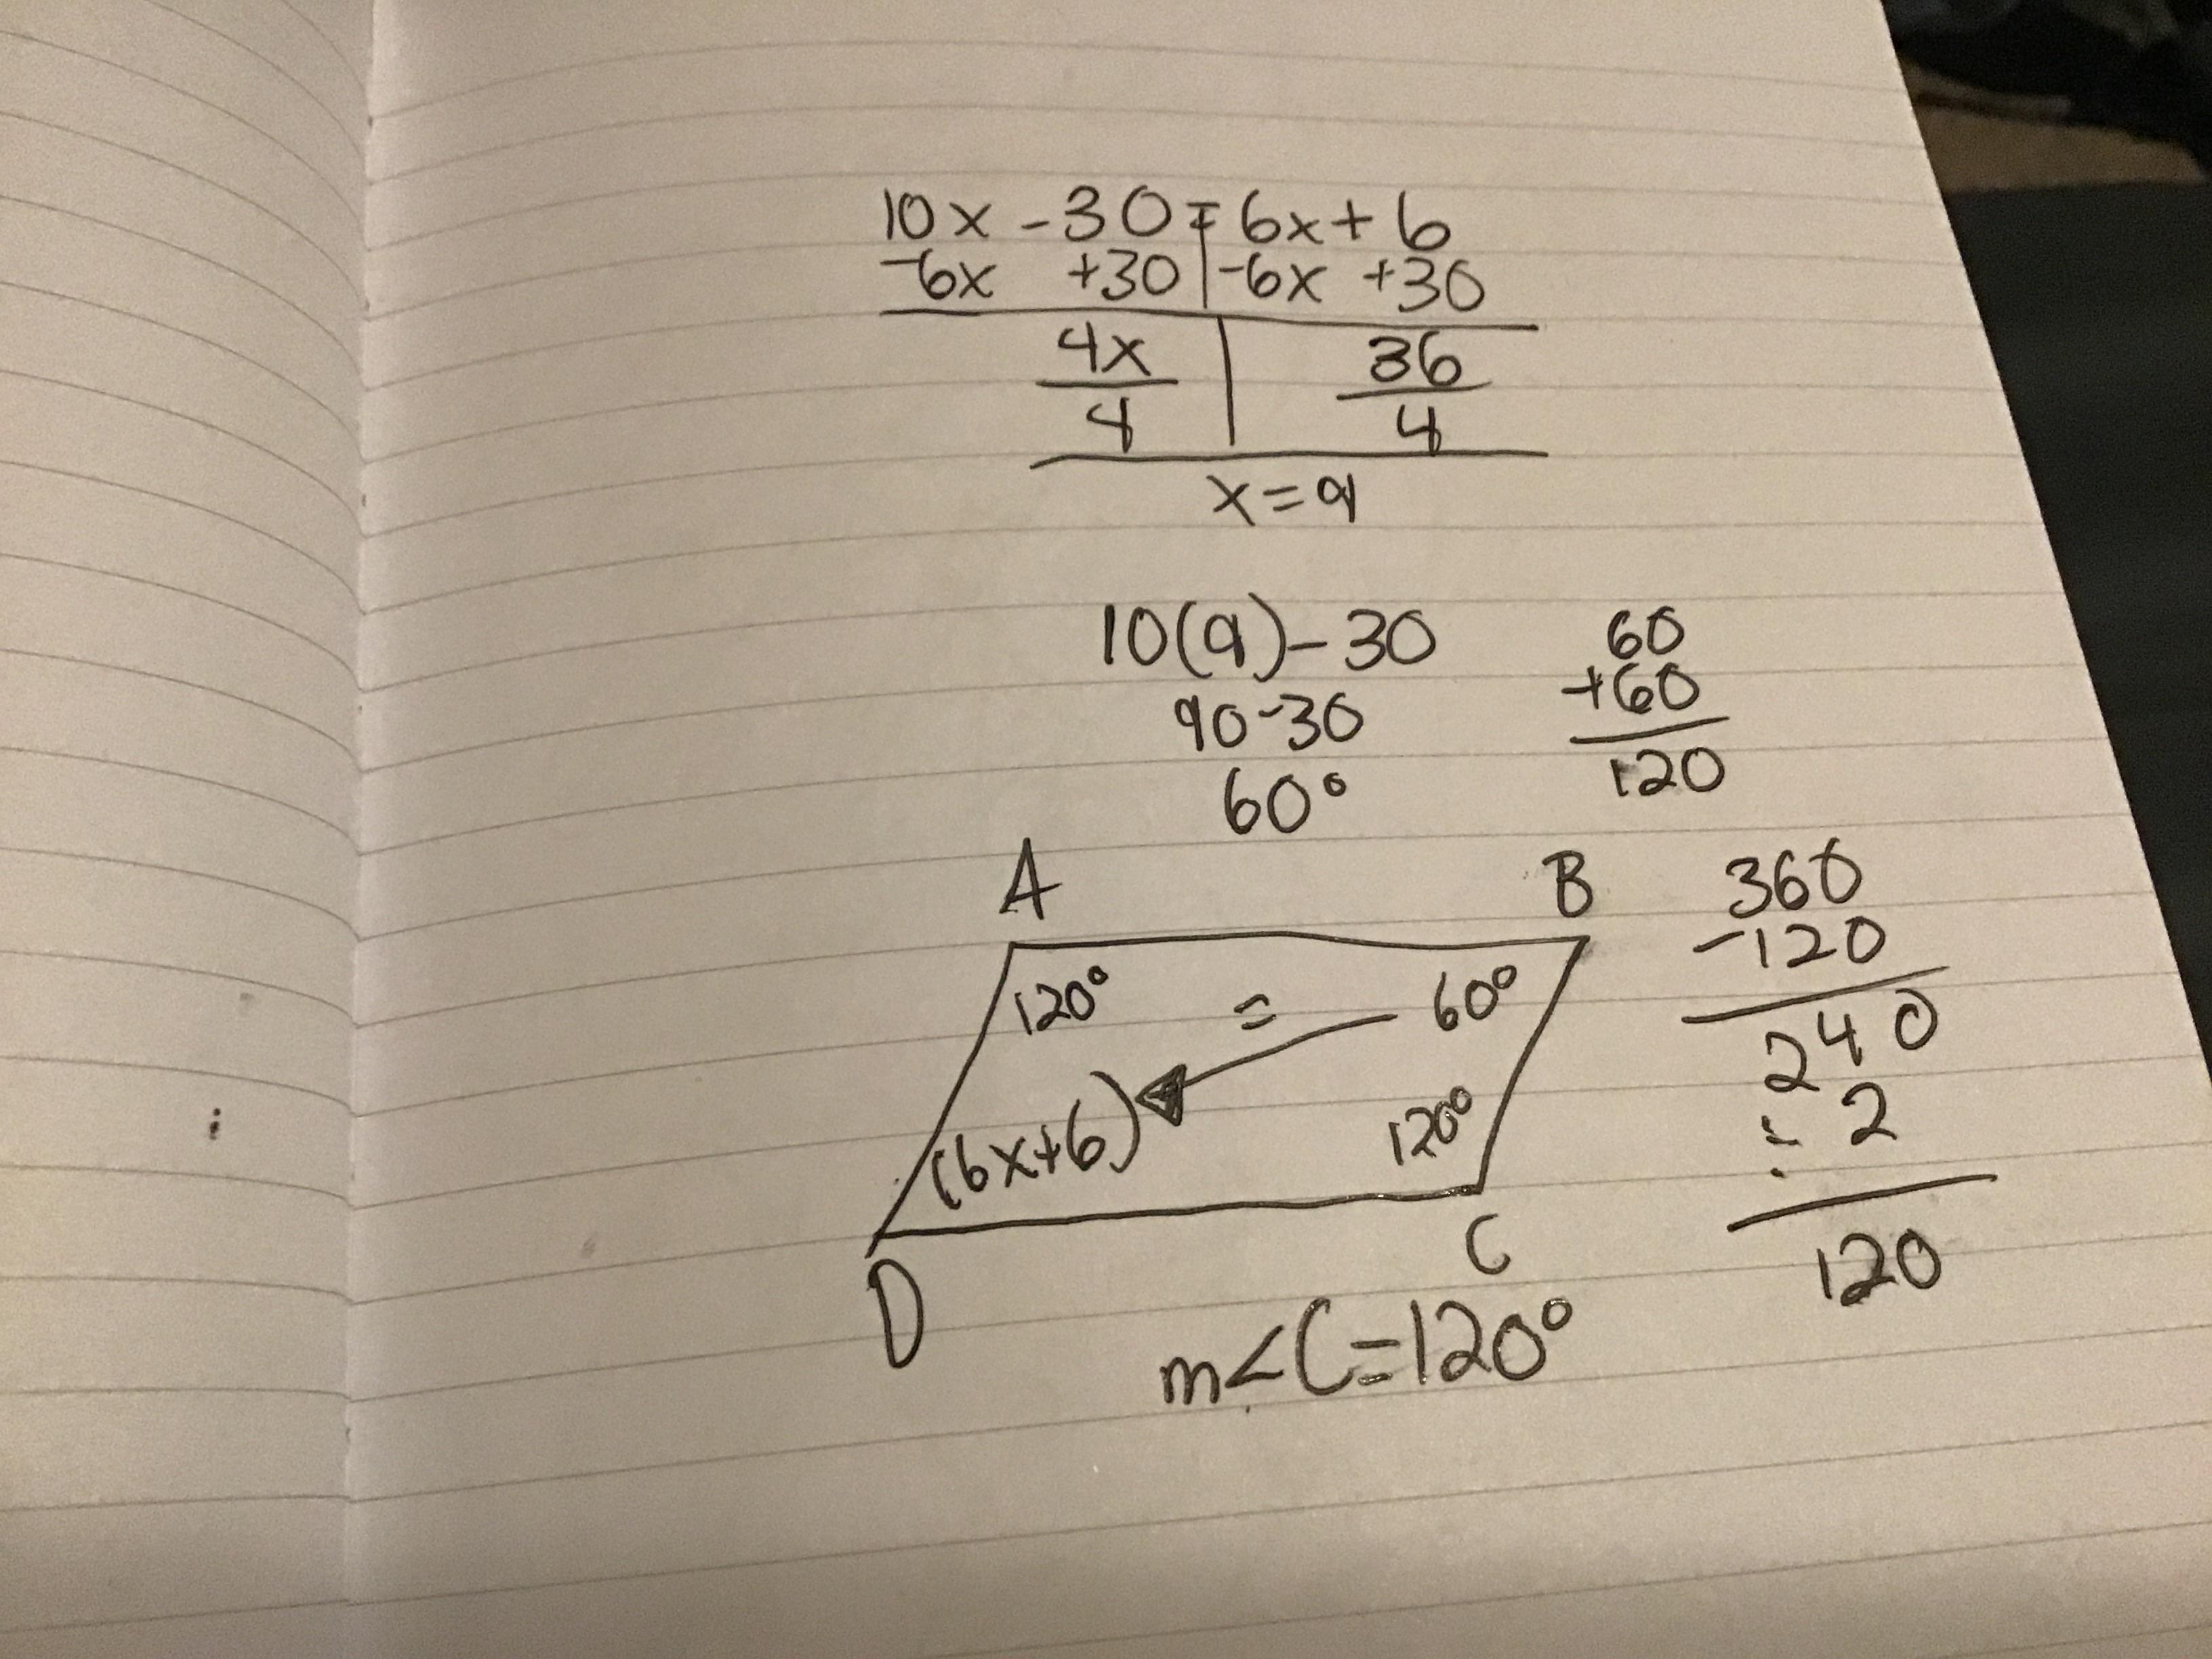 10x - 30 = 6x + 6
-6x +30 | -6x +30
4x | 36
4 | 4
x = 9
10(9) - 30
90 - 30
60°
60
+60
120
A B
120° = 60°
(6x+6) 120°
D C
360
-120
240
÷ 2
120
m<C=120°